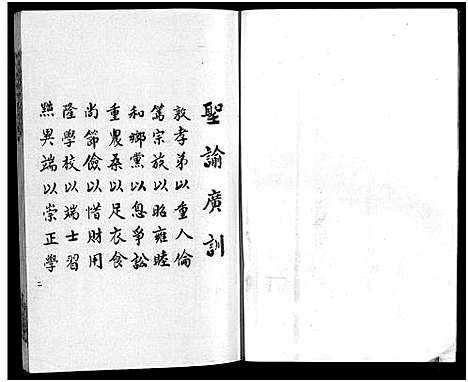 聖諭廣訓
敦孝弟以重人倫
篤宗族以昭雍睦
和鄉黨以息爭訟
重農桑以足衣食
尚節儉以惜財用
隆學校以端士習
黜異端以崇正學
二